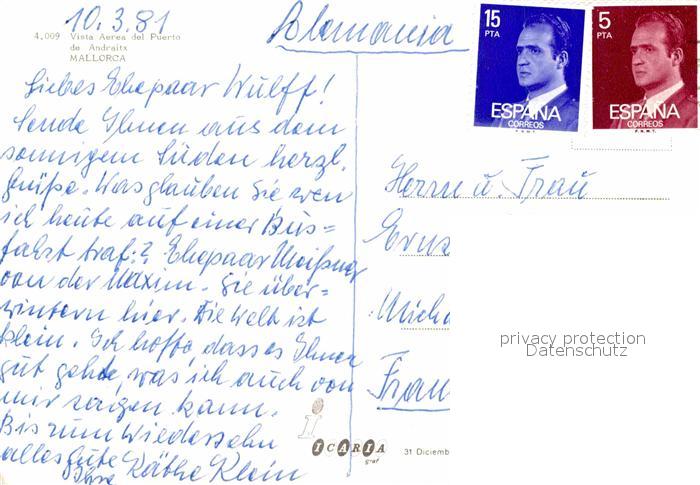 10.3.81
4.009 Vista Aerea del Puerto
de Andraitx
MALLORCA
Liebes Ehepaar Wulff!
Sende Ihnen aus dem
sonnigem Süden herzl.
Grüße. Was glauben Sie wen
ich heute auf einer Bus=
fahrt traf:? Ehepaar Meißner
von der Maxim. Sie über=
wintern hier. Die Welt ist
klein. Ich hoffe, dass es Ihnen
gut gehte, was ich auch von
mir sagen kann.
Bis zum Wiedersehn
alles Gute
Ihre Käthe Klein
15 PTA
ESPAÑA
CORREOS
F.N.M.T.
5 PTA
ESPAÑA
CORREOS
F.N.M.T.
Herrn u. Frau
privacy protection
Datenschutz
ICARIA
graf
31 Diciemb